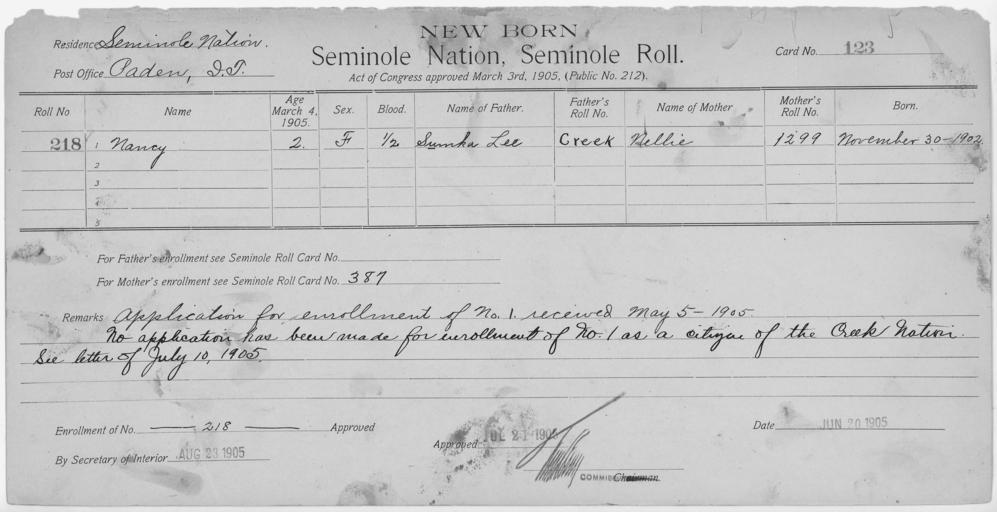 NEW BORN
Residence Seminole Nation.
Seminole Nation, Seminole Roll.
Card No. 123
Post Office Paden, I.T.
Act of Congress approved March 3rd, 1905, (Public No. 212).
Roll No Name Age March 4, 1905. Sex. Blood. Name of Father. Father's Roll No. Name of Mother Mother's Roll No. Born.
218 1 Nancy 2. F 1/2 Sumka Lee Creek Nellie 1299 November 30-1902
2
3
4
5
For Father's enrollment see Seminole Roll Card No.
For Mother's enrollment see Seminole Roll Card No. 387
Remarks Application for enrollment of No. 1. received May 5-1905.
No application has been made for enrollment of No. 1 as a citizen of the Creek Nation.
See letter of July 10, 1905
Enrollment of No. 218 Approved
Date JUN 20 1905
Approved: JUL 21 1905
By Secretary of Interior AUG 23 1905
Chairman